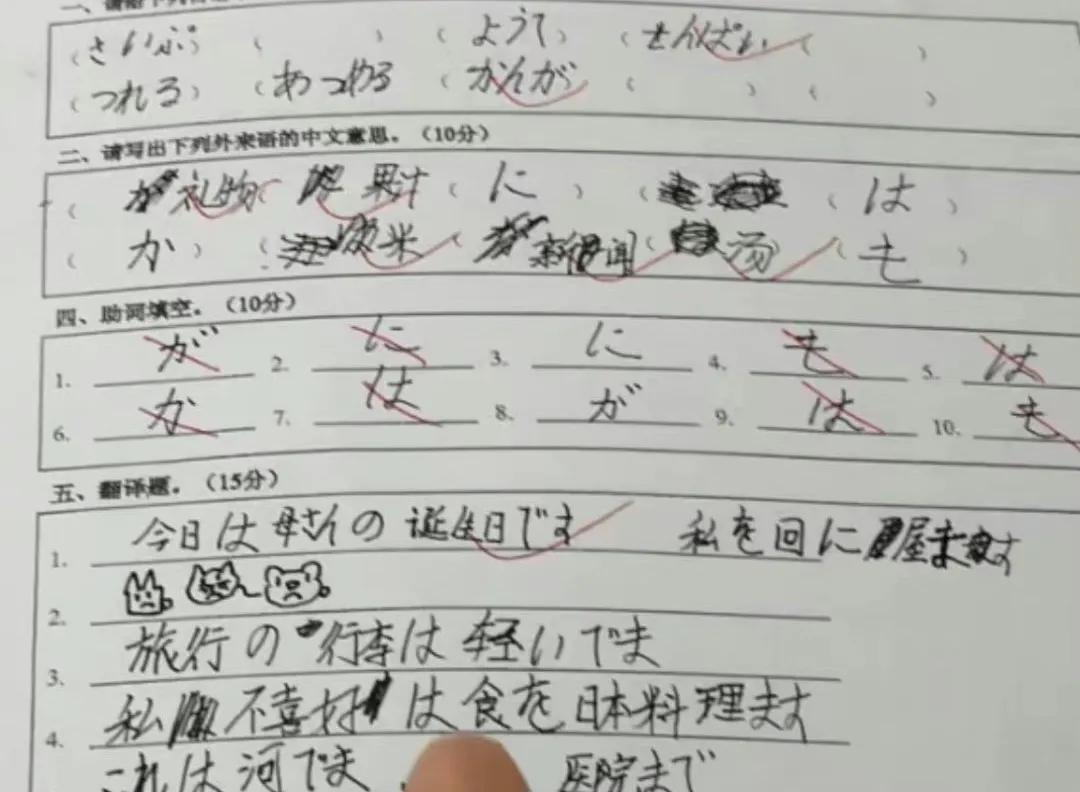 (さいぶ) ( ) (ようて) (せんぱい) ( )
(つれる) (あつめる) (かんが) ( ) ( )
二、请写出下列外来语的中文意思。(10分)
( 礼物 果汁 ( に ) ( ( は )
( か ) ( 米 ( 新闻 ( 汤 ( も )
四、助词填空。(10分)
1. が 2. に 3. に 4. も 5. は
6. か 7. は 8. が 9. は 10. も
五、翻译题。(15分)
1. 今日は母さんの誕生日です 私を回に屋ます
2.
3. 旅行の行李は軽いでま
4. 私不喜好は食を日本料理ます
これは河でま 医院まで